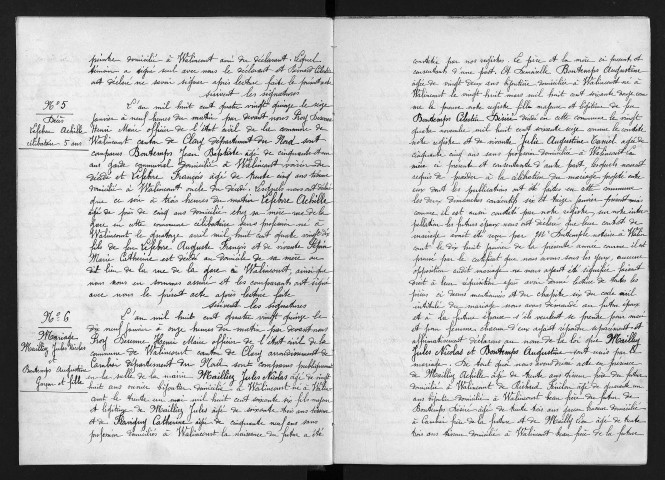 présentes domicilié à Walincourt ami du déclarant. Lequel
témoin a signé seul avec nous le déclarant et
ont déclaré ne savoir signer après lecture faite le présent acte
suivent les signatures
N° 5
Décès
Lefebvre Achille
célibataire 5 ans
L'an mil huit cent quatre vingt quinze le seize
janvier à neuf heures du matin par devant nous Proy
Henri Maire officier de l'état civil de la commune de
Walincourt canton de Clary département du Nord sont
comparus Bontemps Jean Baptiste âgé de cinquante et un
ans garde communal domicilié à Walincourt voisin du
décédé et Lefebvre François âgé de trente cinq ans
domicilié à Walincourt oncle du décédé. Lesquels nous ont déclaré
que ce soir à trois heures du matin Lefebvre Achille
âgé de près de cinq ans domicilié chez sa mère rue de la
gare en cette commune célibataire sans profession né à
Walincourt le quatorze avril mil huit cent quatre vingt dix
fils de feu Lefebvre Auguste François et de vivante
Marie Catherine est décédé au domicile de sa mère au
dit lieu de la rue de la gare à Walincourt, ainsi que
nous nous en sommes assuré et les comparants ont signé
avec nous le présent acte après lecture faite
suivent les signatures
N° 6
Mariage
Mailliez Jules Nicolas
et
Bontemps Augustine
Garçon et fille
L'an mil huit cent quatre vingt quinze le
dix neuf janvier à onze heures du matin par devant nous
Proy Henri Maire officier de l'état civil de la
commune de Walincourt canton de Clary arrondissement de
Cambrai département du Nord sont comparus publiquement
en la salle de la mairie Mailliez Jules Nicolas âgé de vingt
huit ans domicilié à Walincourt né à Walin
court le trente un mai mil huit cent soixante six fils majeur
et légitime de Mailliez Jules âgé de soixante trois ans
et de Flavigny Catherine âgée de cinquante neuf ans sans
profession domiciliés à Walincourt la naissance du futur a été
constatée par nos registres. Le père et la mère ici présents et
consentants d'une part. Et Demoiselle Bontemps Augustine
âgée de vingt deux ans domiciliée à Walincourt née à
Walincourt le vingt huit mars mil huit cent soixante douze com
me le prouve notre registre fille majeure et légitime de feu
Bontemps décédé en cette commune le vingt
quatre novembre mil huit cent soixante seize comme le constate
notre registre et de vivante Augustine âgée de
cinquante cinq ans sans profession domiciliée à Walincourt la
mère ici présente et consentante d'autre part. Lesquels nous ont
requis de procéder à la célébration du mariage projeté entre
eux dont les publications ont été faites en cette commune
les deux dimanches consécutifs six et treize janvier présent mois
comme il est aussi constaté par notre registre, sur notre inter
pellation les futurs époux nous ont déclaré que leur contrat de
mariage avait été reçu par M° notaire à Walin
court le dix huit janvier de la présente année comme il est
prouvé par le certificat que nous avons sous les yeux, aucune
opposition audit mariage ne nous ayant été signifiée faisant
droit à leur réquisition après avoir donné lecture de toutes les
pièces ci dessus mentionnées et du chapitre six du code civil
intitulé du mariage nous avons demandé au futur époux
et à la future épouse s'ils veulent se prendre pour mari
et pour femme chacun d'eux ayant répondu séparément et
affirmativement déclarons au nom de la loi que Mailliez
Jules Nicolas et Bontemps Augustine sont unis par le
mariage. De tout quoi nous avons dressé acte en présence
de Mailliez Achille âgé de trente ans frère du futur
domicilié à Walincourt de Richard âgé de quarante un
ans domicilié à Walincourt beau frère du futur de
Bontemps âgé de trente trois ans domicilié
à Caudry frère de la future et de Mailly Léon âgé de trente
trois ans domicilié à Walincourt beau frère de la future